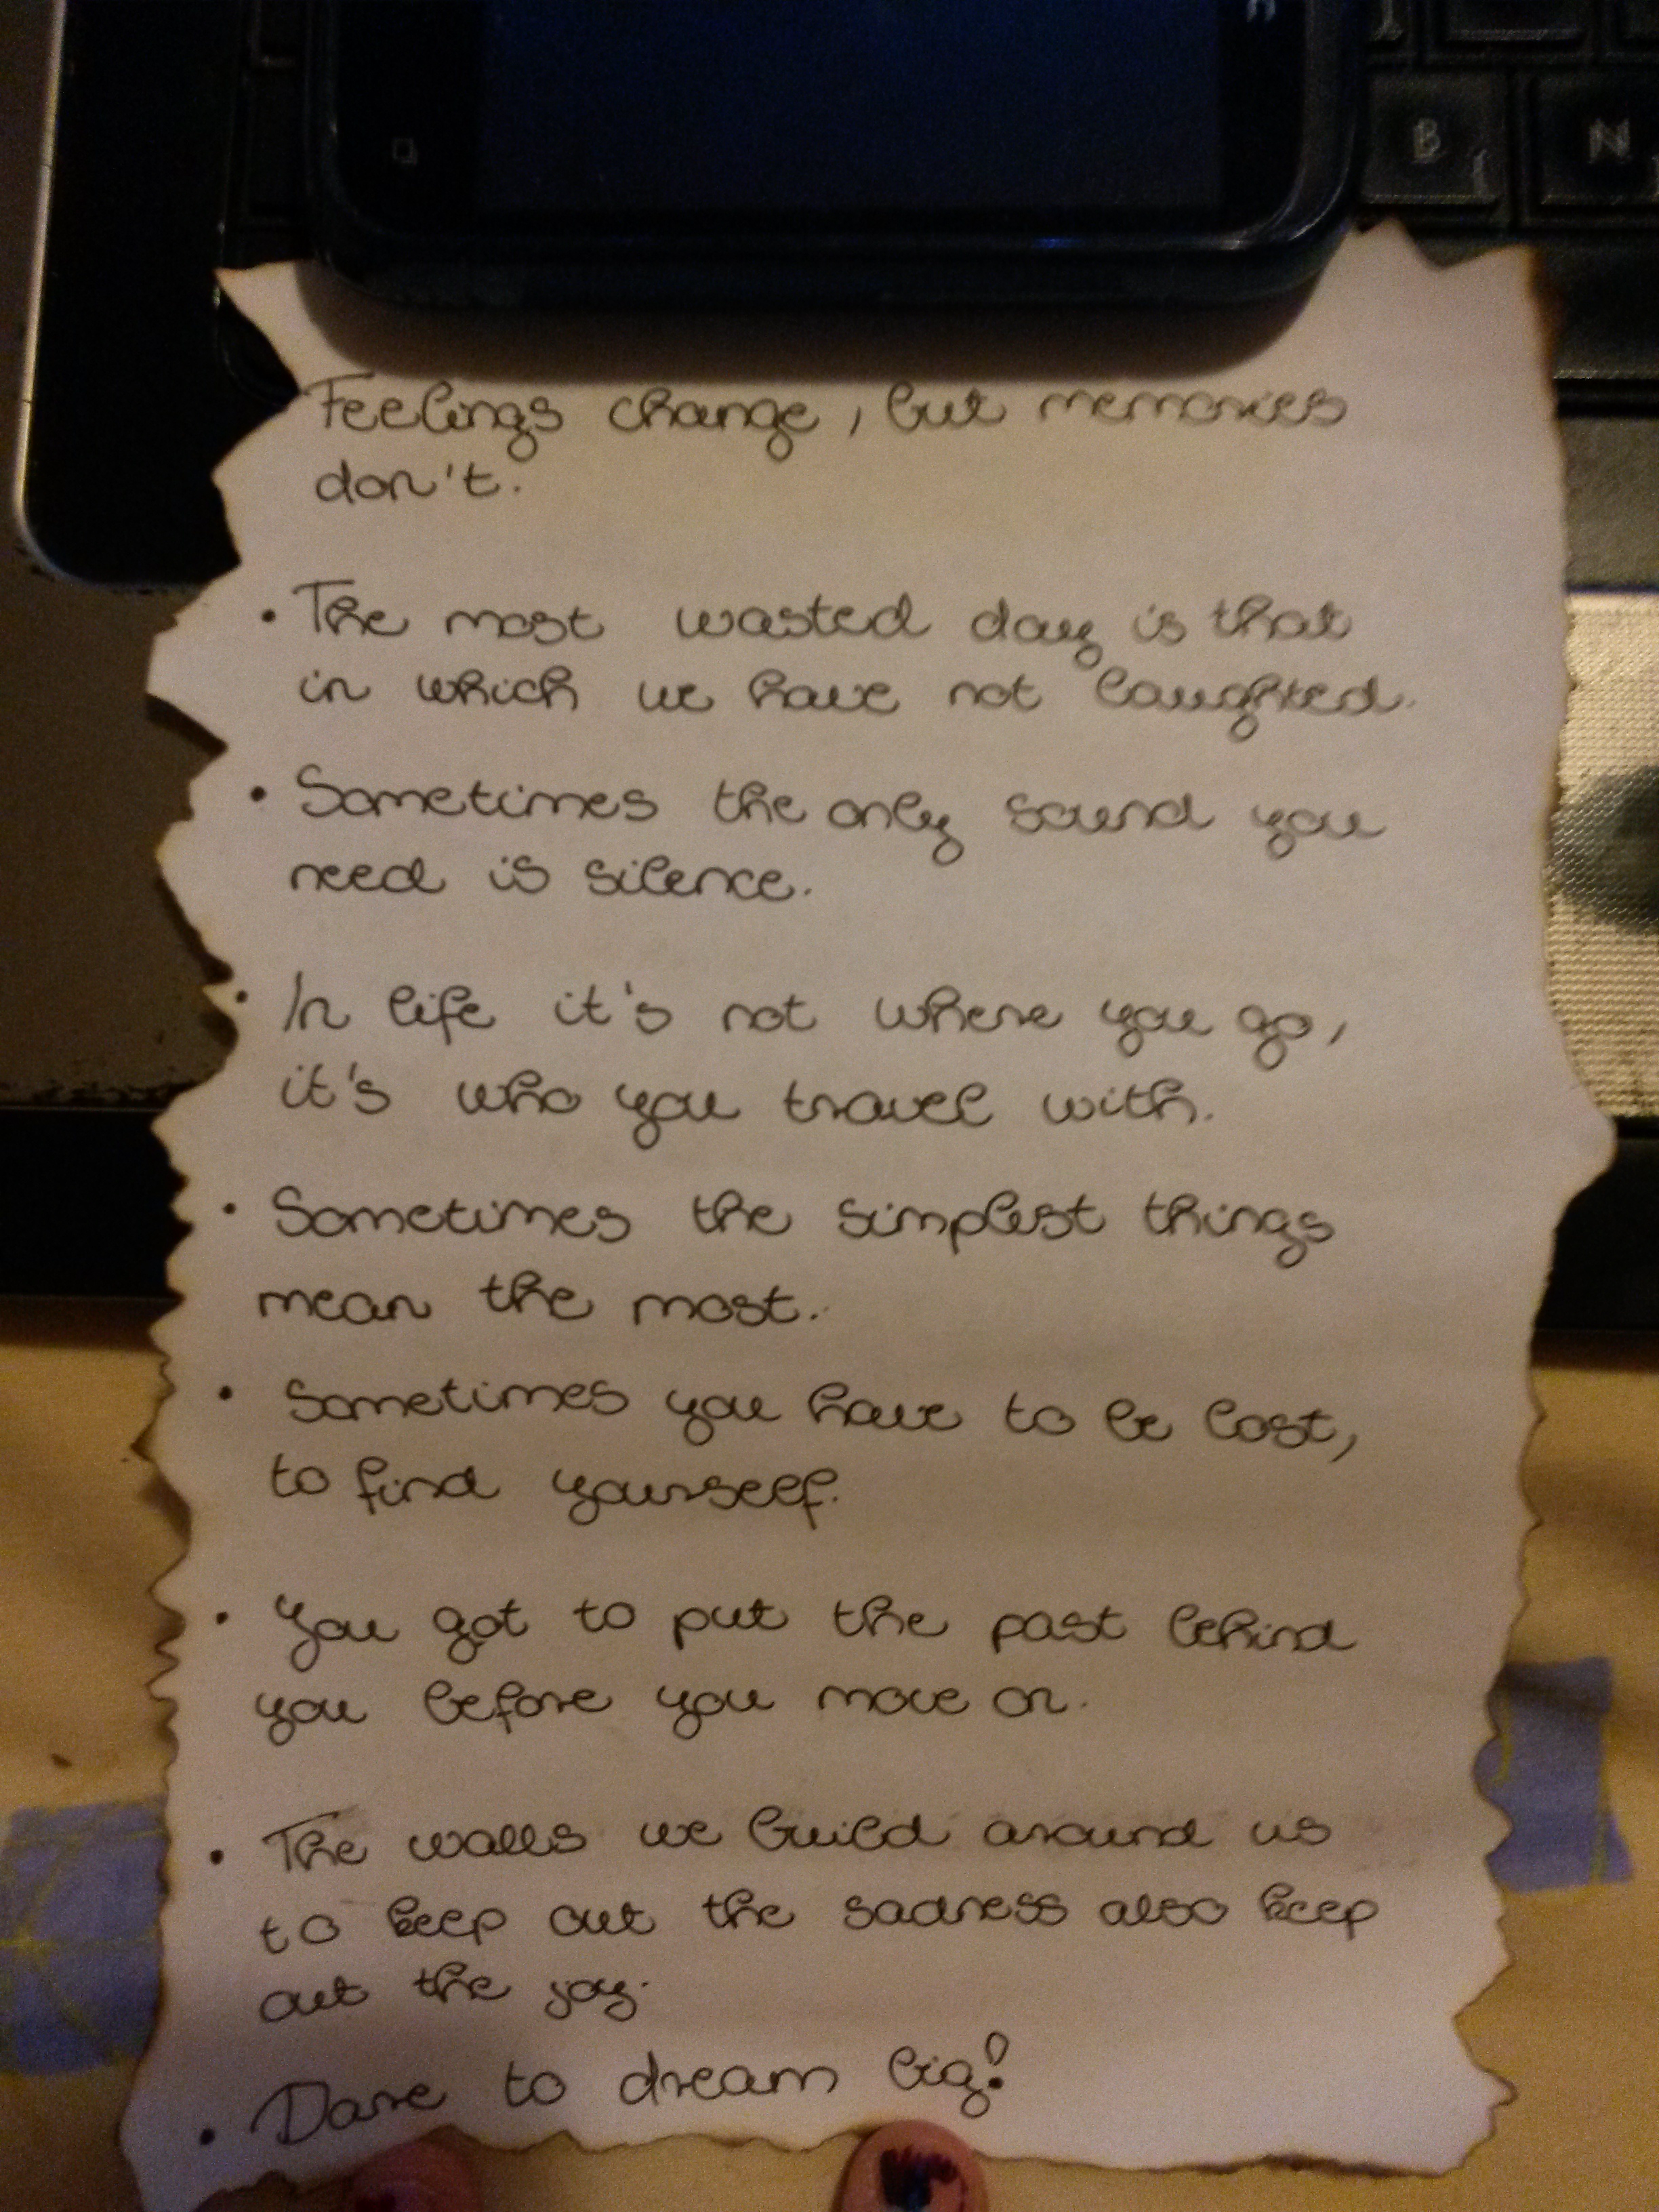 B N
Feelings change, but memories
don't.
• The most wasted day is that
in which we have not laughted.
• Sometimes the only sound you
need is silence.
• In life it's not where you go,
it's who you travel with.
• Sometimes the simplest things
mean the most.
• Sometimes you have to be lost,
to find yourself.
• You got to put the past behind
you before you move on.
• The walls we build around us
to keep out the sadness also keep
out the joy.
• Dare to dream big!